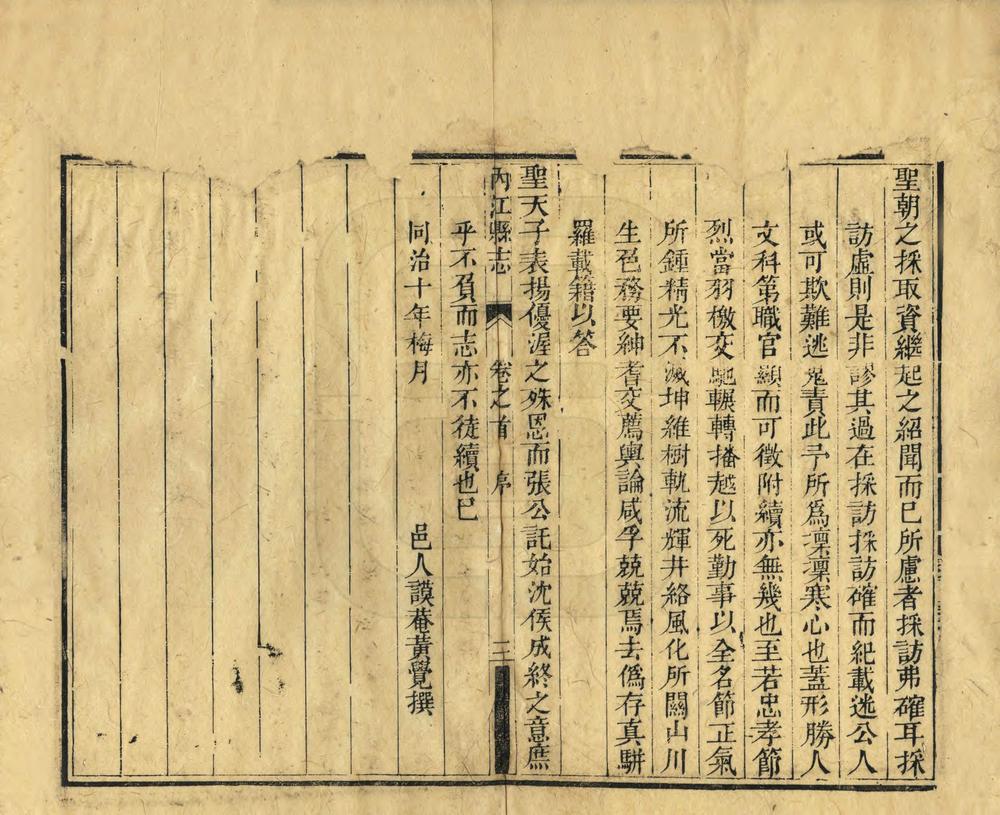 聖朝之採取資繼起之紹聞而已所慮者採訪弗確耳採
訪虛則是非謬其過在採訪採訪確而紀載迯公人
或可欺難逃鬼責此予所爲凜凜寒心也蓋形勝人
文科第職官顯而可徵附續亦無幾也至若忠孝節
烈當羽檄交馳輾轉播越以死勤事以全名節正氣
所鍾精光不滅坤維樹軌流輝井絡風化所關山川
生色務要紳耆交薦輿論咸孚兢兢焉去僞存真駢
羅載籍以答
聖天子表揚優渥之殊恩而張公託始沈侯成終之意庶
內江縣志 卷之首 序 二
乎不負而志亦不徒續也已
同治十年梅月 邑人謨菴黃覺撰